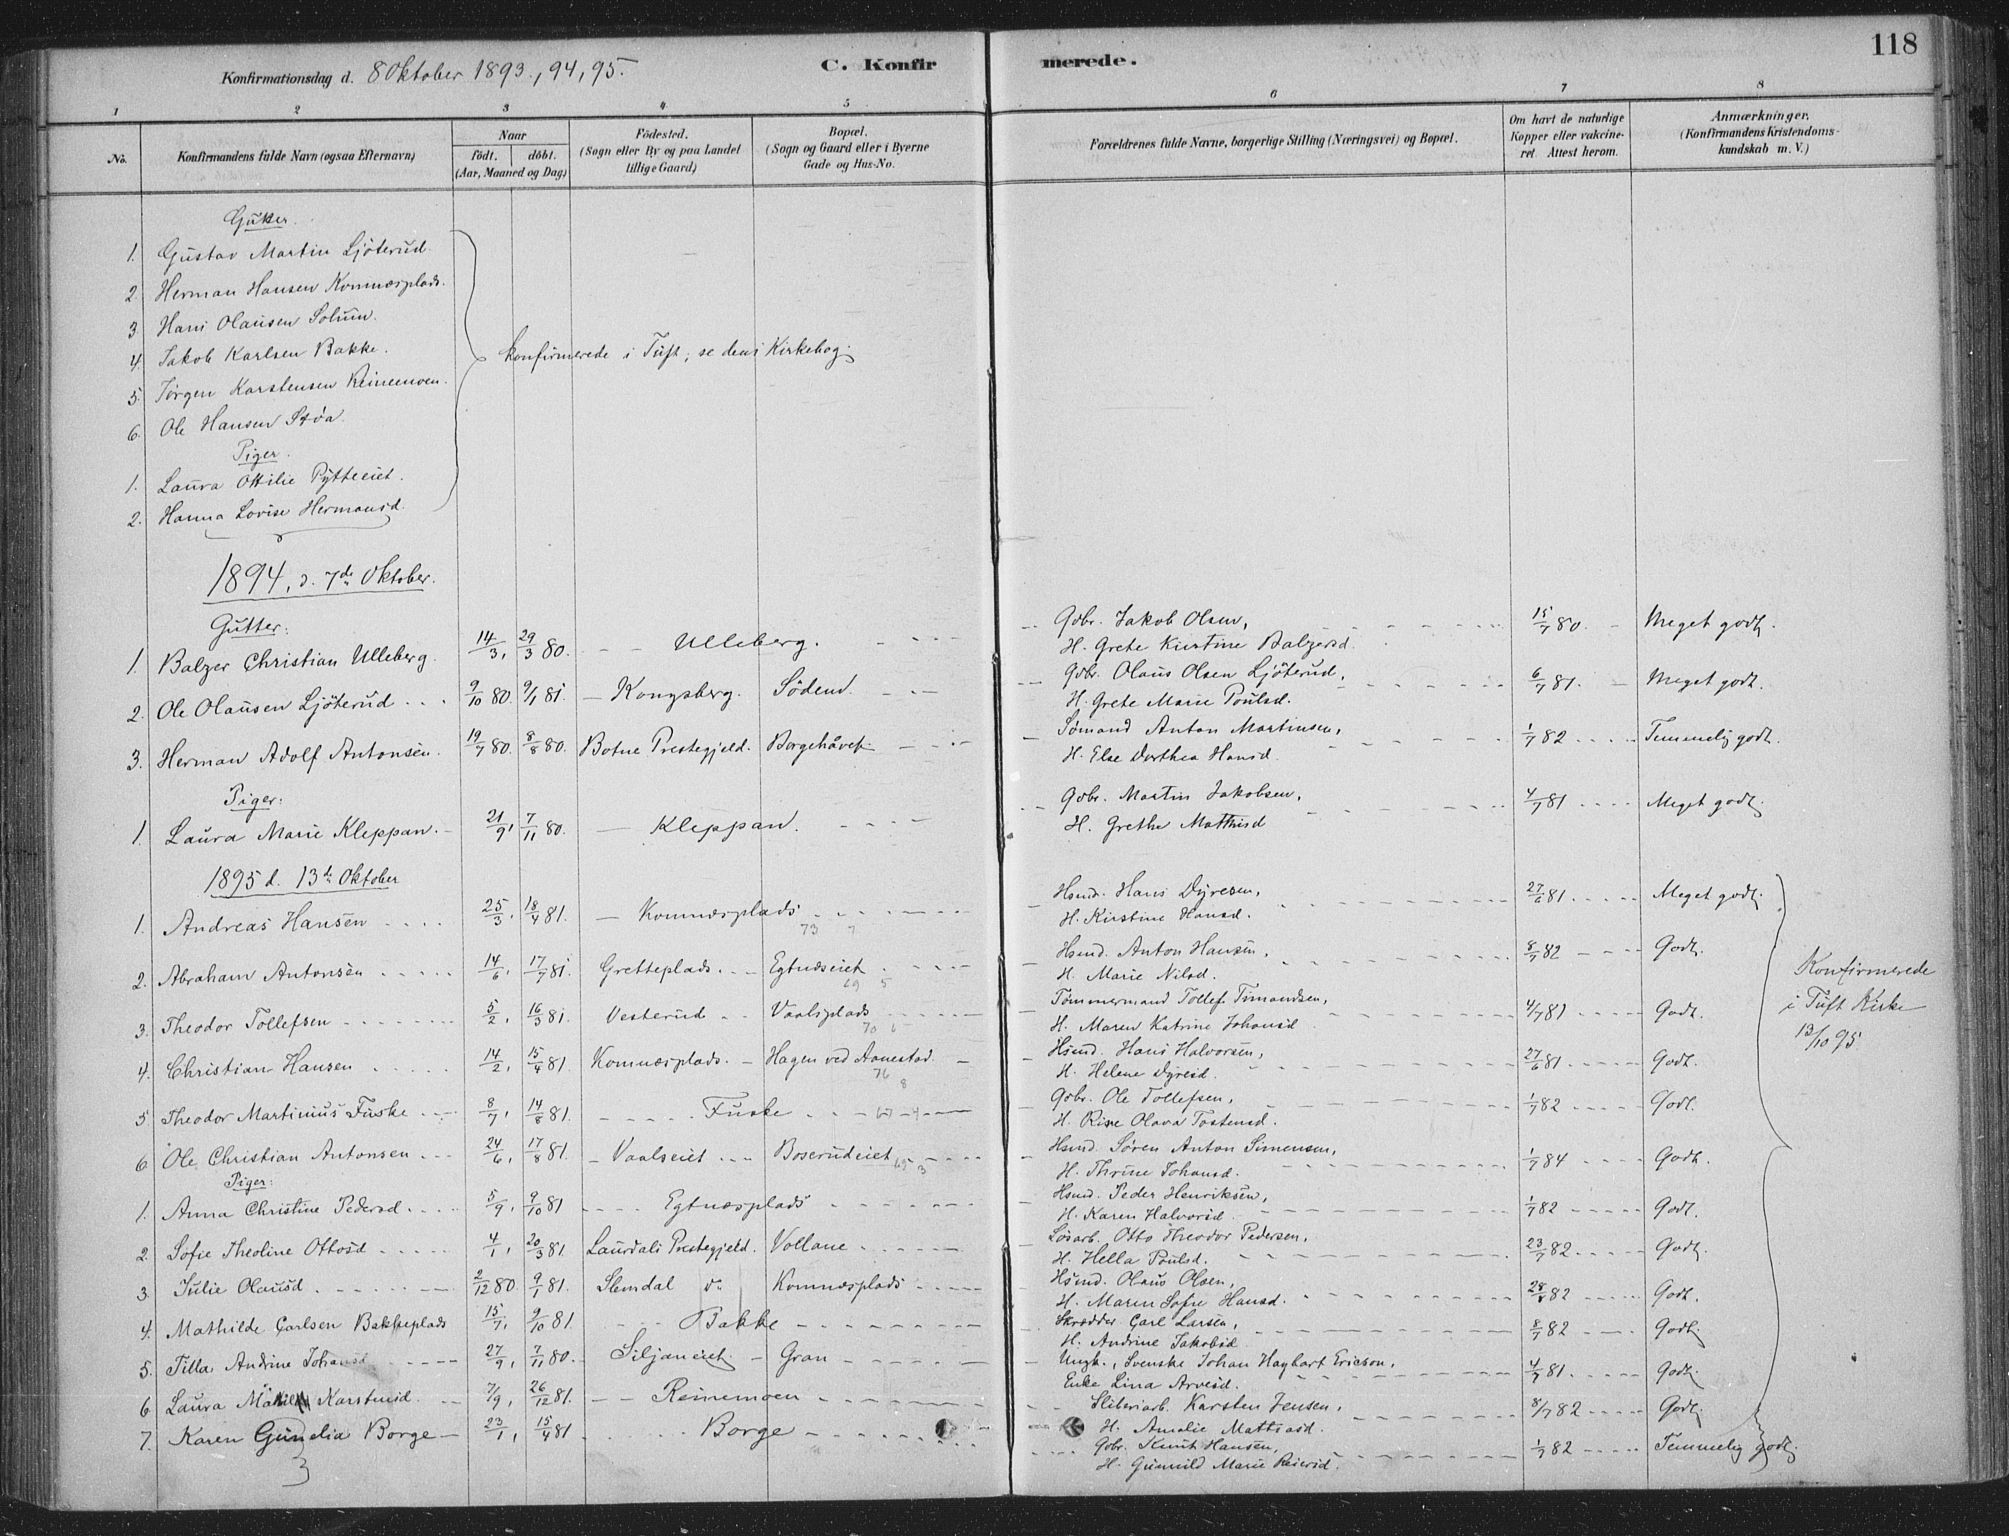 118
Konfirmationsdag d. 8 Oktober 1893, 94, 95.
C. Konfirmerede.
1 2 3 4 5 6 7 8
No. Konfirmandens fulde Navn (ogsaa Efternavn) Naar födt. döbt. (Aar, Maaned og Dag) Födested. (Sogn eller By og paa Landet tillige Gaard) Bopæl. (Sogn og Gaard eller i Byerne Gade og Hus-No. Forældrenes fulde Navne, borgerlige Stilling (Næringsvei) og Bopæl. Om havt de naturlige Kopper eller vakcineret. Attest herom. Anmærkninger. (Konfirmandens Kristendomskundskab m. V.)
Gutter.
1. Gustav Martin Ljöterud.
2. Herman Hansen Komnæsplads.
3. Hans Olausen Solum.
4. Jakob Karlsen Bakke.
konfirmerede i Tuft; se dens Kirkebog.
5. Jørgen Karstensen Reinemoen.
6. Ole Hansen Støa
Piger.
1. Laura Ottilie Pytteeiet.
2. Hanna Lovise Hermansd.
1894, d. 7de Oktober.
Gutter:
1. Balzer Christian Ulleberg. 14/3, 29/3 80. Ulleberg. Gbr. Jakob Olsen, 15/7 80. Meget godt.
H. Grete Kirstine Balzersd.
2. Ole Olausen Ljöterud 9/10 80. 9/1 81. Kongsberg. Södend. Gbr. Olaus Olsen Ljöterud, 6/7 81. Meget godt.
H. Grete Marie Poulsd.
3. Herman Adolf Antonsen. 19/7 80. 8/8 80. Botne Prestegjeld. Borgehåvet Sømand Anton Martinsen, 1/7 82 Temmelig godt.
H. Else Dorthea Hansd.
Piger:
1. Laura Marie Kleppan. 21/9, 7/11 80. Kleppan. Gbr. Martin Jakobsen, 4/7 81 Meget godt.
H. Grethe Mathisd
1895 d. 13de Oktober
1. Andreas Hansen 25/3, 18/4 81. Komnæsplads 73 7 Hsmd. Hans Dyresen, 27/6 81 Meget godt.
H. Kirstine Hansd.
2. Abraham Antonsen 14/6, 17/7 81. Gretteplads. Egtnæseiet 69 5 Hsmd. Anton Hansen, 8/7 82 Godt.
H. Marie Nilsd.
Konfirmerede i Tuft Kirke 13/10 95
3. Theodor Tollefsen 5/2, 16/3 81. Vesterud Vaalsplads 70 6 Tömmermand Tollef Timandsen, 4/7 81 Godt.
H. Maren Katrine Johansd
4. Christian Hansen 14/2, 15/4 81. Komnæsplads. Hagen ved Aanestad. 76 8 Hsmd. Hans Halvorsen, 27/6 81 Godt.
H. Helene Dyresd.
5 Theodor Martinius Fuske 8/7, 14/8 81. Fuske 67 4 Gbr. Ole Tollefsen, 1/7 82 Godt.
H. Rise Olava Tostensd.
6 Ole Christian Antonsen 24/6, 17/8 81. Vaalseiet Boserudeiet 65 3 Hsmd. Sören Anton Simensen, 1/7 84 Godt.
H. Thrine Johansd.
Piger:
1. Anna Christine Pedersd. 5/9, 9/10 81 Egtnæsplads Hsmd. Peder Henriksen, 1/7 82 Godt.
H. Karen Halvorsd.
2. Sofie Theoline Ottosd 4/1, 20/3 81. Laurdals Prestegjeld. Vollane Lösarb. Otto Theodor Pedersen, 23/7 82 Godt.
H. Hella Poulsd.
3. Julie Olausd 2/12 80. 9/1 81. Slemdal Komnæsplads Hsmd. Olaus Olsen, 82 Godt.
H. Maren Sofie Hansd.
4. Mathilde Carlsen Bakkeplads 15/7, 9/10 81. Bakke Skrædder Carl Larsen, 8/7 82 Godt.
H. Andrine Jakobsd
5. Tilla Andrine Johansd 27/9, 7/11 80. Siljaneiet Gran Ungk., Svenske Johan Hagbart Ericson, 4/7 81 Godt.
Enke Lina Arvesd.
6 Laura Karstensd. 7/9, 26/12 81. Reinemoen Sliberiarb. Karsten Jensen, 8/7 82 Godt.
H. Amalie Mattisd.
7. Karen Gunelia Borge 23/1, 15/4 81 Borge Gbr. Knut Hansen, 1/7 82 Temmelig godt.
H. Gunnild Marie Reiersd.